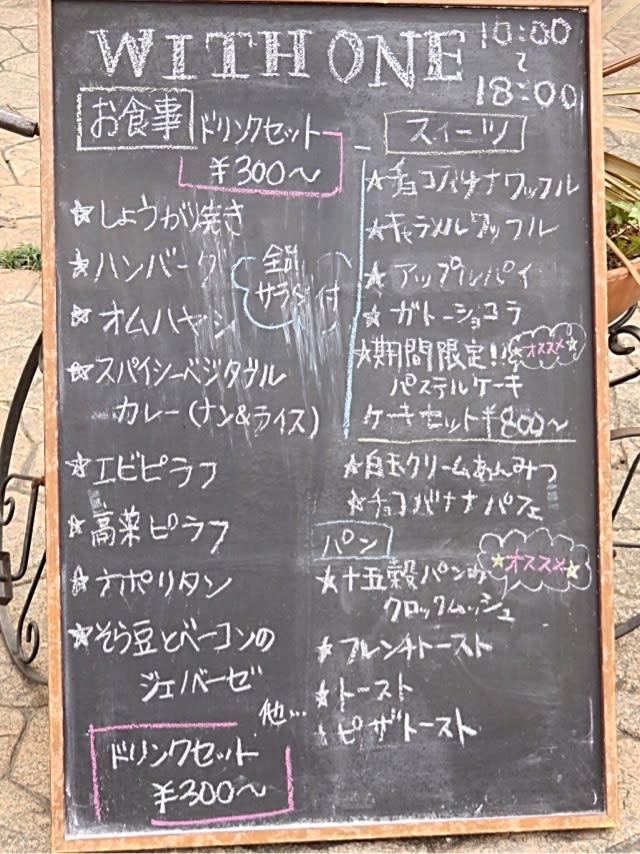 WITH ONE
10:00
〜
18:00
お食事
ドリンクセット
¥300〜
☆しょうがり焼き
☆ハンバーグ
全品
サラダ付
☆オムハヤシ
☆スパイシーベジタブル
カレー(ナン&ライス)
☆エビピラフ
☆高菜ピラフ
☆ナポリタン
☆そら豆とベーコンの
ジェノバーゼ
他...
ドリンクセット
¥300〜
スイーツ
☆チョコバナナワッフル
☆キャラメルワッフル
☆アップルパイ
☆ガトーショコラ
☆期間限定!!
☆オススメ☆
パステルケーキ
ケーキセット¥800〜
☆白玉クリームあんみつ
☆チョコバナナパフェ
パン
☆オススメ☆
☆十五穀パンの
クロックムッシュ
☆フレンチトースト
☆トースト
ピザトースト